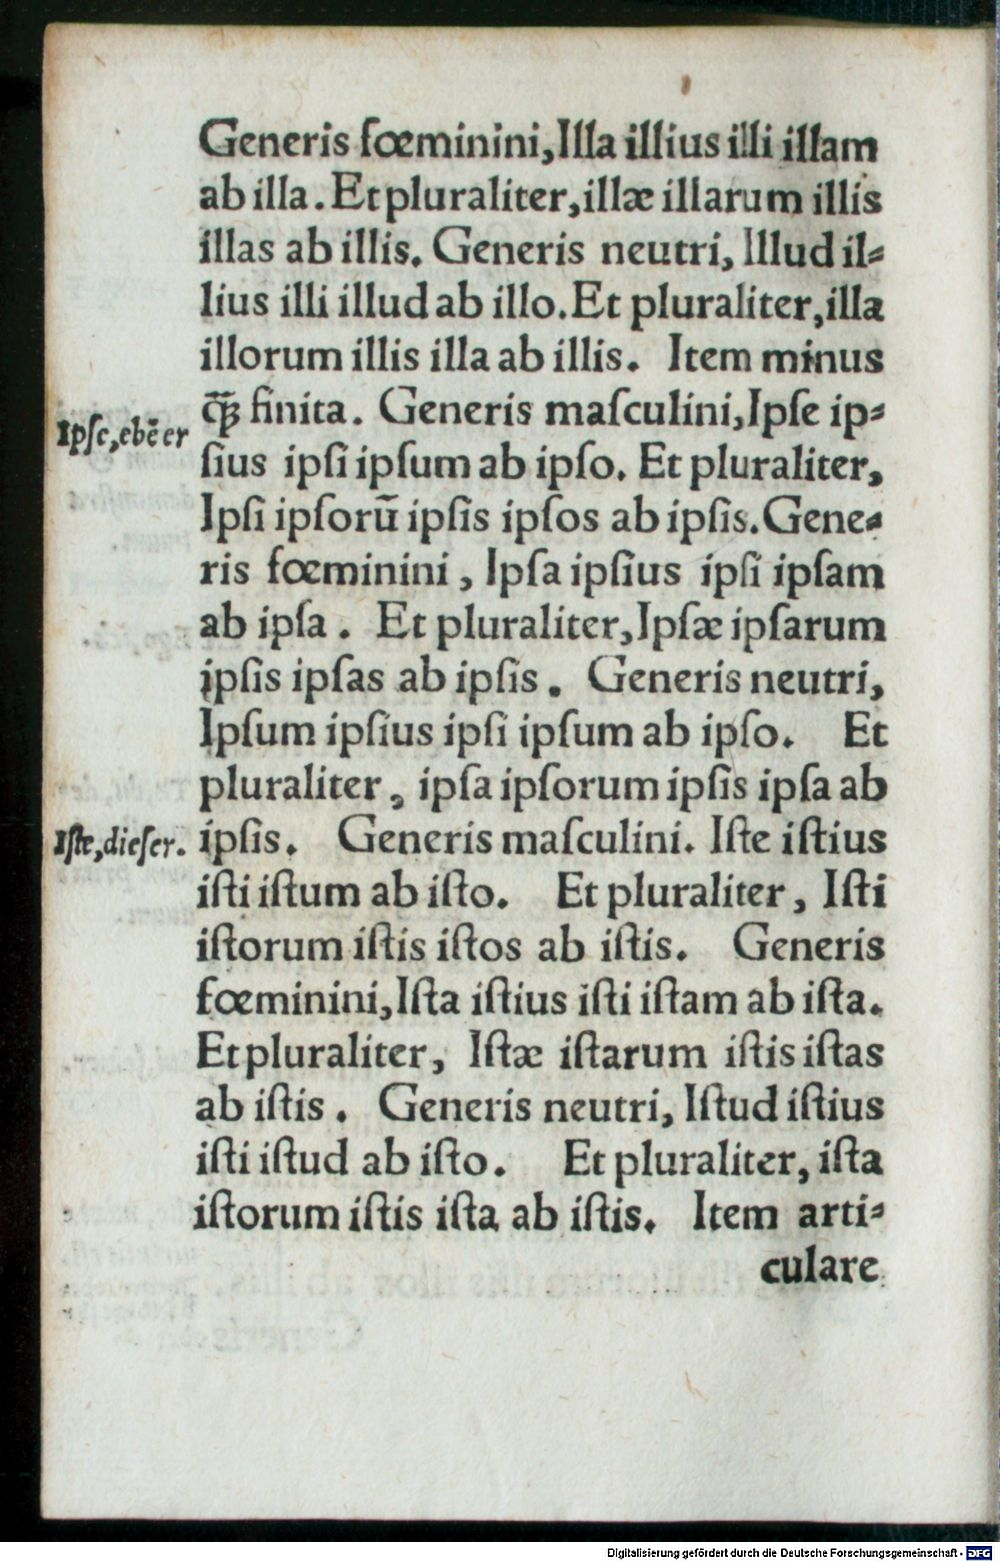 Generis fœminini,Illa illius illi illam
ab illa. Et pluraliter,illæ illarum illis
illas ab illis. Generis neutri, Illud il⸗
lius illi illud ab illo.Et pluraliter,illa
illorum illis illa ab illis. Item minus
ꝗ̃ꝫ finita. Generis maſculini,Ipſe ip⸗
Ipſe,ebẽ er
ſius ipſi ipſum ab ipſo. Et pluraliter,
Ipſi ipſorũ ipſis ipſos ab ipſis.Gene⸗
ris fœminini , Ipſa ipſius ipſi ipſam
ab ipſa . Et pluraliter,Ipſæ ipſarum
ipſis ipſas ab ipſis . Generis neutri,
Ipſum ipſius ipſi ipſum ab ipſo. Et
pluraliter , ipſa ipſorum ipſis ipſa ab
Iſte,dieſer.
ipſis. Generis maſculini. Iſte iſtius
iſti iſtum ab iſto. Et pluraliter , Iſti
iſtorum iſtis iſtos ab iſtis. Generis
fœminini,Iſta iſtius iſti iſtam ab iſta.
Et pluraliter, Iſtæ iſtarum iſtis iſtas
ab iſtis . Generis neutri, Iſtud iſtius
iſti iſtud ab iſto. Et pluraliter, iſta
iſtorum iſtis iſta ab iſtis. Item arti⸗
culare
Digitalisierung gefördert durch die Deutsche Forschungsgemeinschaft - DFG